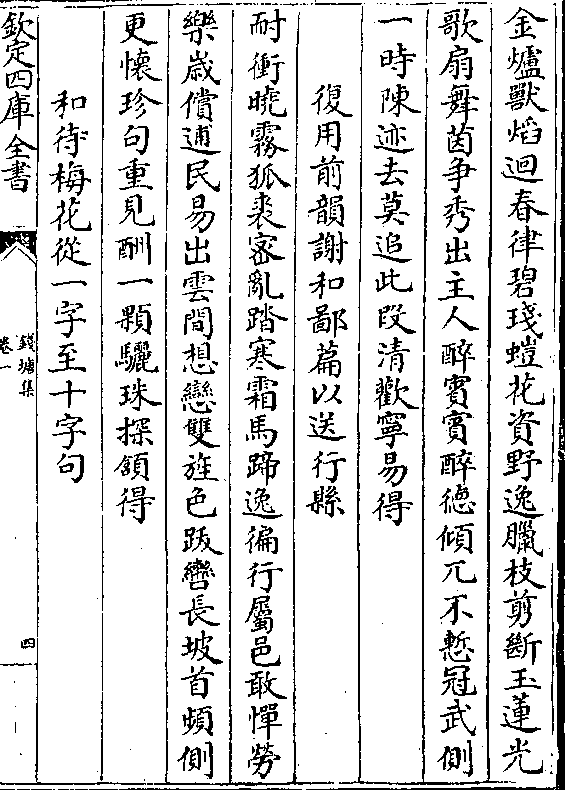 金爐獸熖迴春律碧琖螘花資野逸臘枝剪斷玉蓮光
歌扇舞茵争秀出主人醉賓賓醉徳傾兀不慙冠武側
一時陳迹去莫追此段清歡寧易得
復用前韻謝和鄙篇以送行縣
耐衝曉霧狐裘宻亂踏寒霜馬蹄逸徧行屬邑敢憚勞
樂歳償逋民易出雲間想戀雙旌色跋轡長坡首頻側
更懷珍句重見酬一顆驪珠探頷得
和待梅花從一字至十字句
欽定四庫全書
錢塘集
卷一
四